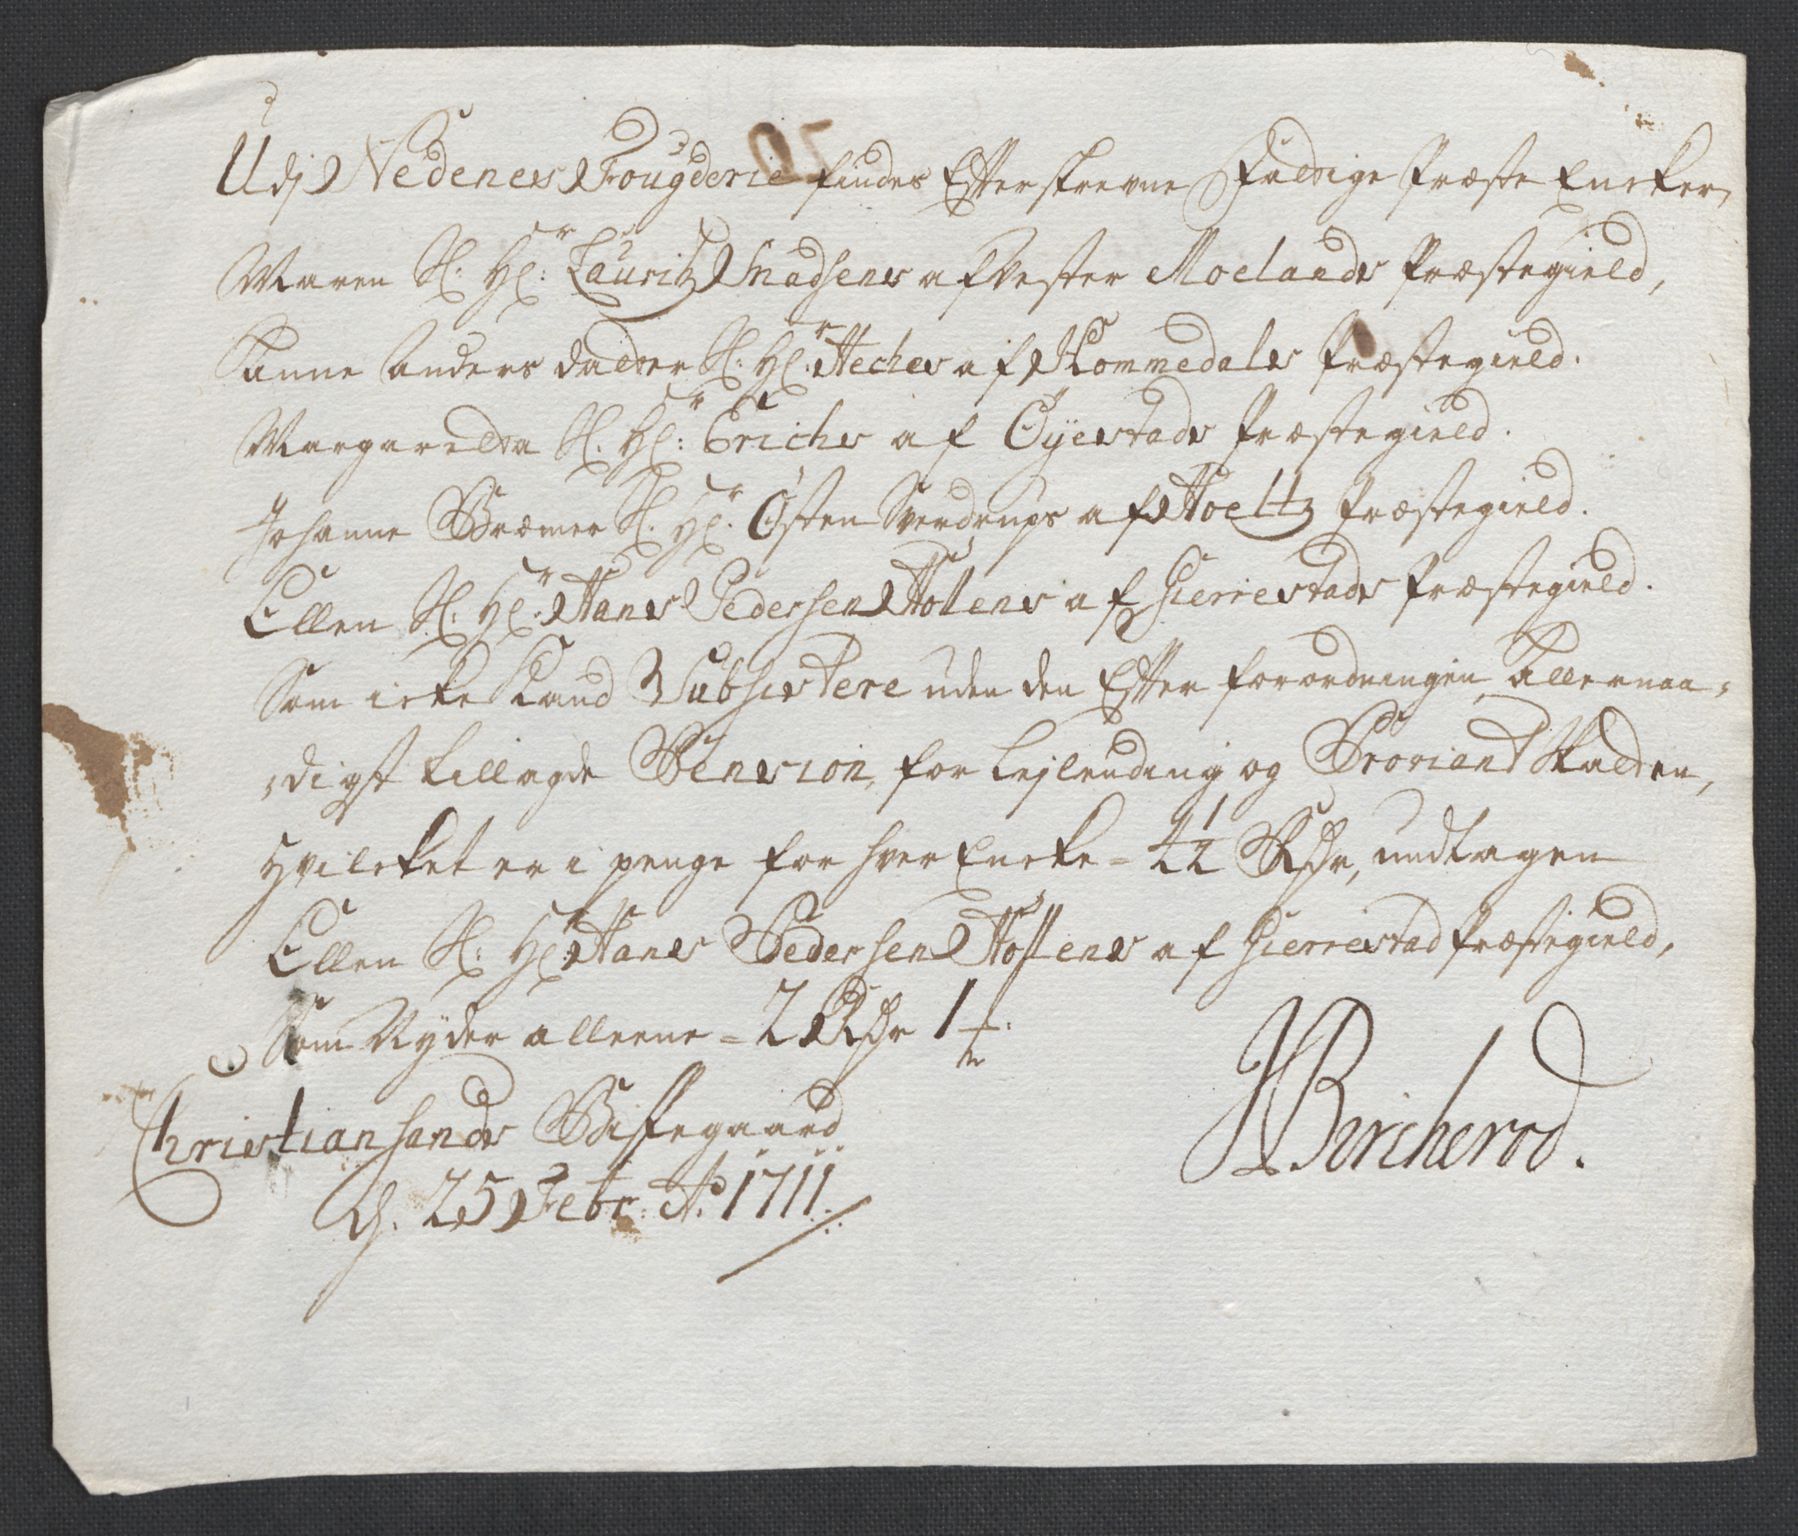 Udj Nedenes Fougderie findes Efterskrevne Fattige Præste Encker,
Maren Sl. Hr: Lauritz Madsens af Vester Moelands Præstegield,
Anne Anders datter Sl. Hr: Aches af Hommedals Præstegield.
Margaretta Sl. Hr: Erichs af Øyestads Præstegield.
Johanne Bræmer Sl. Hr. Østen Sverdrups af Hoeltz Præstegield.
Ellen Sl. Hr: Hans Pedersen Tollens af Gierrestads Præstegield.
Som icke Kand Subsistere uden den Efter forordningen Allernaa-
digst tillagde Pension, for Lejlending og Proviant Skatten,
Hvilcket er i penge for hver Encke = 4½ Rdr, undtagen
Ellen Sl: Hr: Hans Pedersen Tollens af Gierrestad Præstegield,
Som Nyder alleene = 2 Rdr 1
Christiansands Bispegaard
d. 25 Febr: Ao. 1711.
Bircherod.